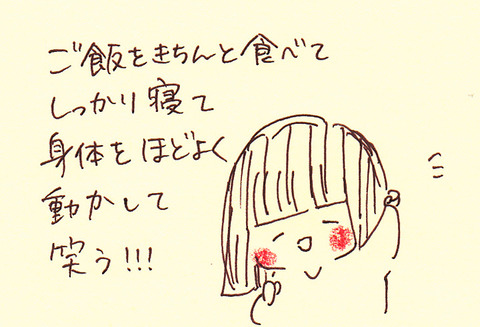 ご飯をきちんと食べて
しっかり寝て
身体をほどよく
動かして
笑う!!!